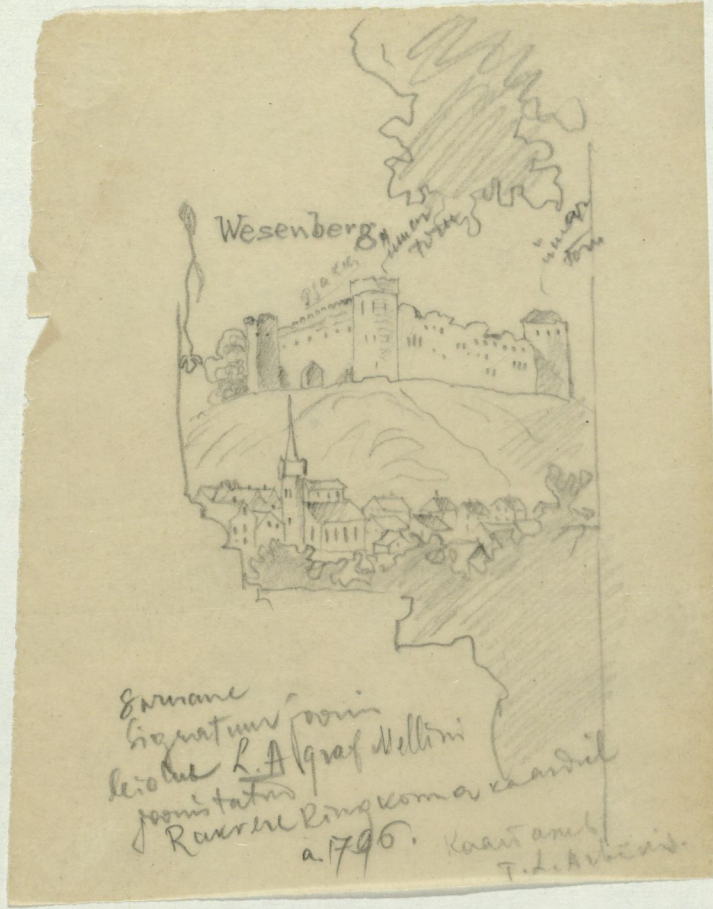 Wesenberg
ümar
torn
ümar
torn
Sarnane
signatuur joonis
leidub L. A graf Mellini
joonistatud
Rakvere Ringkonna kaardil
a. 1796.
Kaart asub